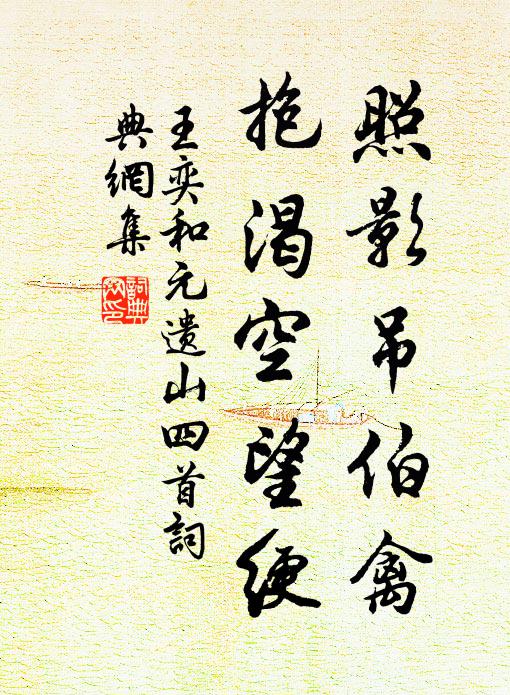 照影吊伯禽
抱渴空望绠
王奕和元遗山四首詞
典網集
詞典網印